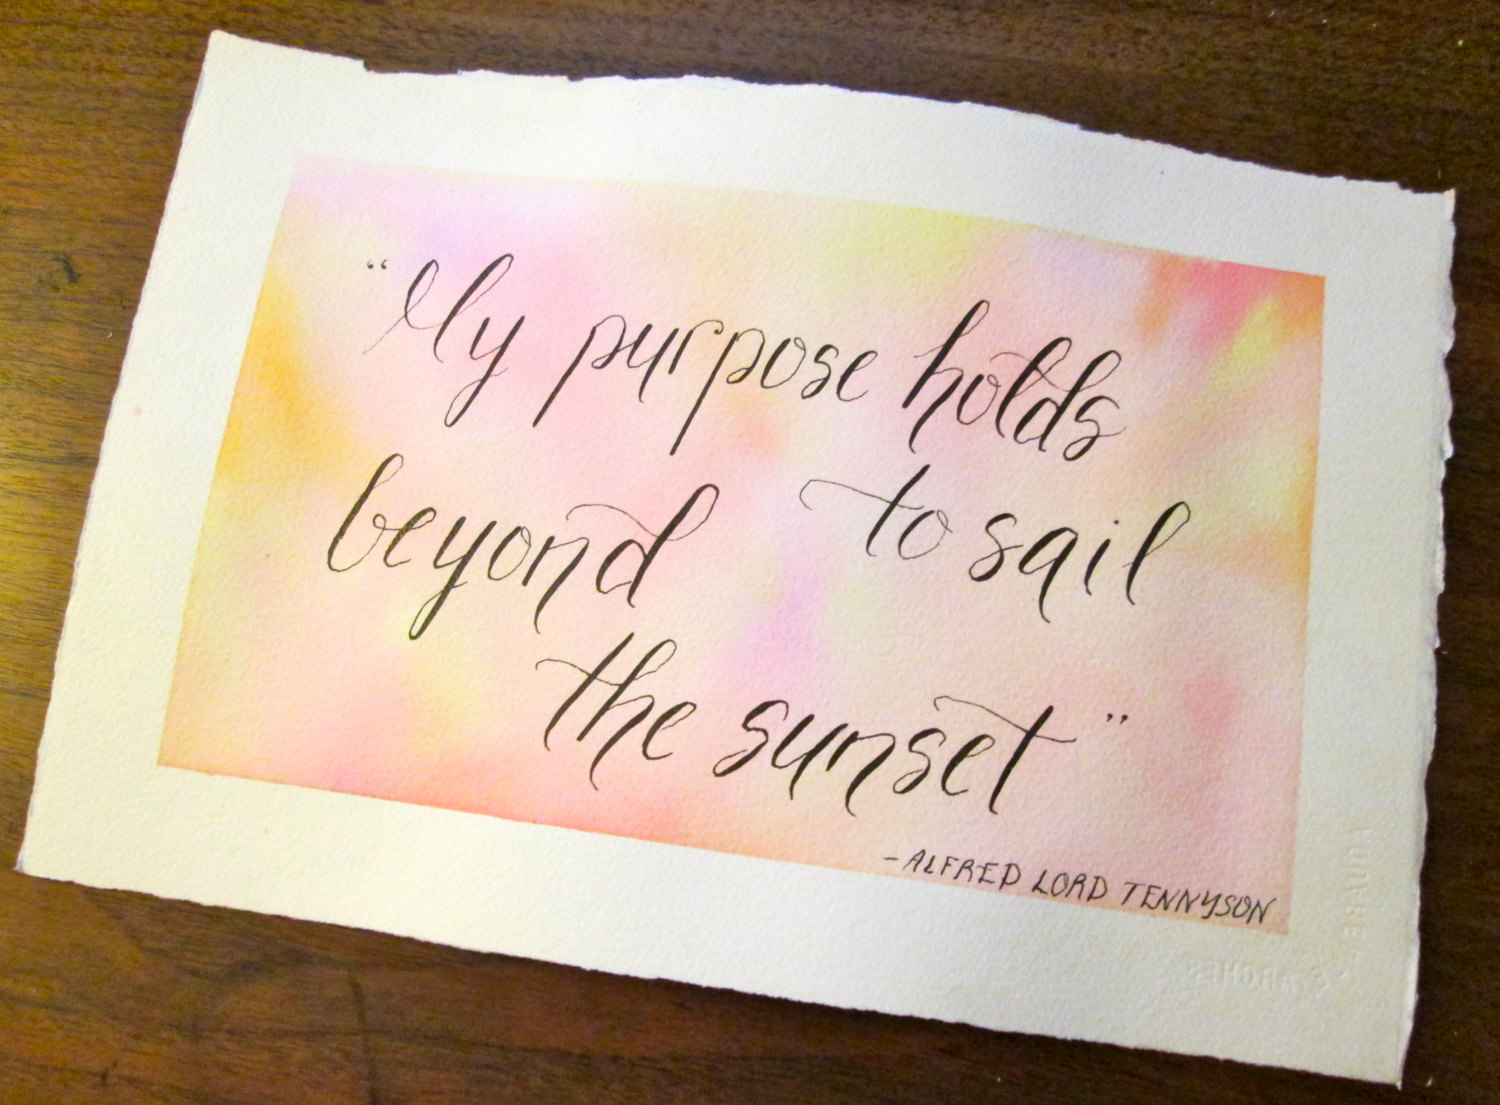 “My purpose holds
beyond to sail
the sunset”
-ALFRED LORD TENNYSON
ARCHES